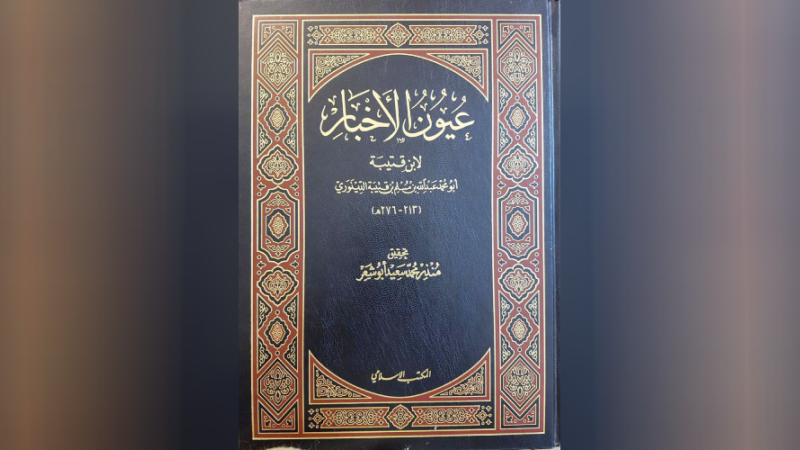 عُيُونُ الأَخْبَارِ
لابن قتيبة
أبو محمّد عبد الله بن مُسْلم بن قتيبة الدِّينَوَريّ
(٢١٣ - ٢٧٦هـ)
تحقيق
مُنْذِر محمّد سَعيد أبُو شَعَر
المكتب الإسلامي